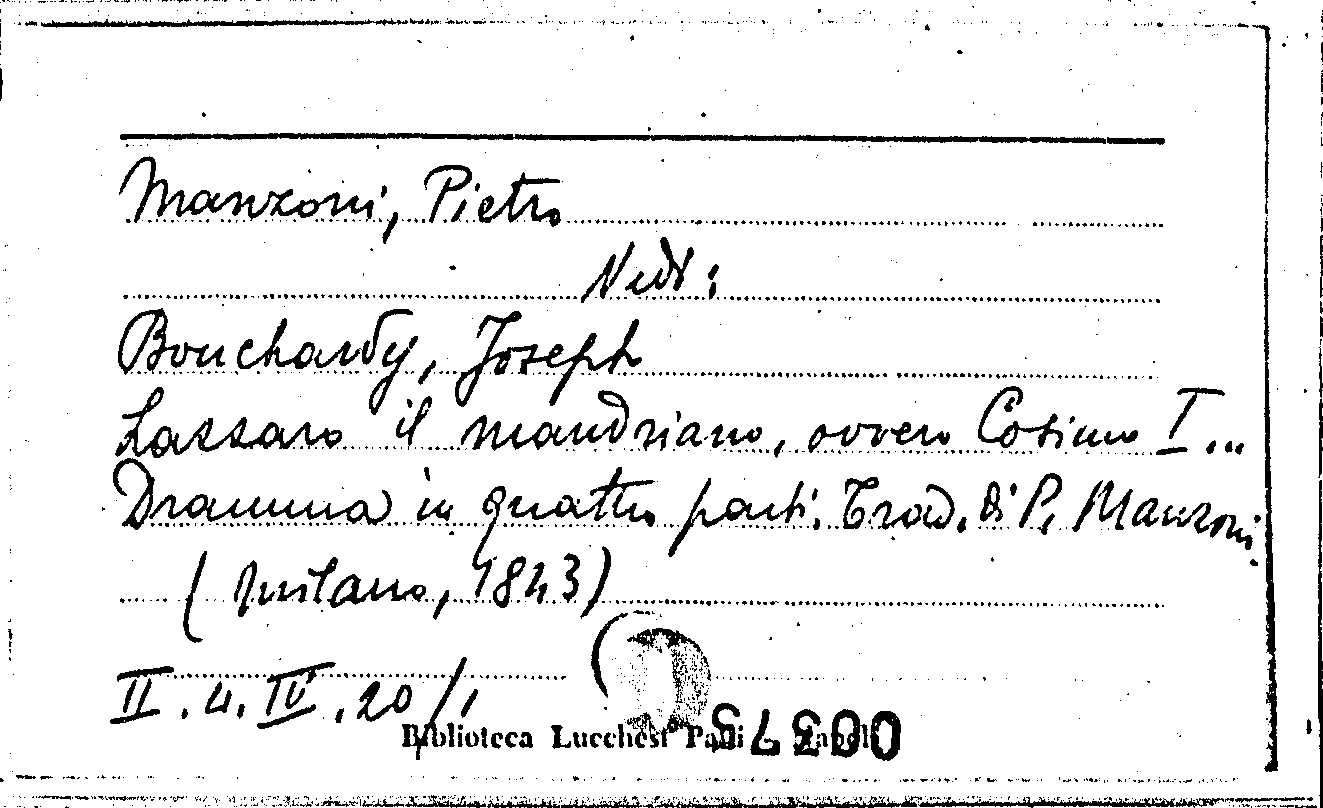 Manzoni, Pietro
Vedi:
Bouchardy, Joseph
Lazzaro il mandriano, ovvero Cosimo I...
Dramma in quattro parti. Trad. di P. Manzoni.
(Milano, 1843)
II.4.IV.20/1
Biblioteca Lucchesi Palli